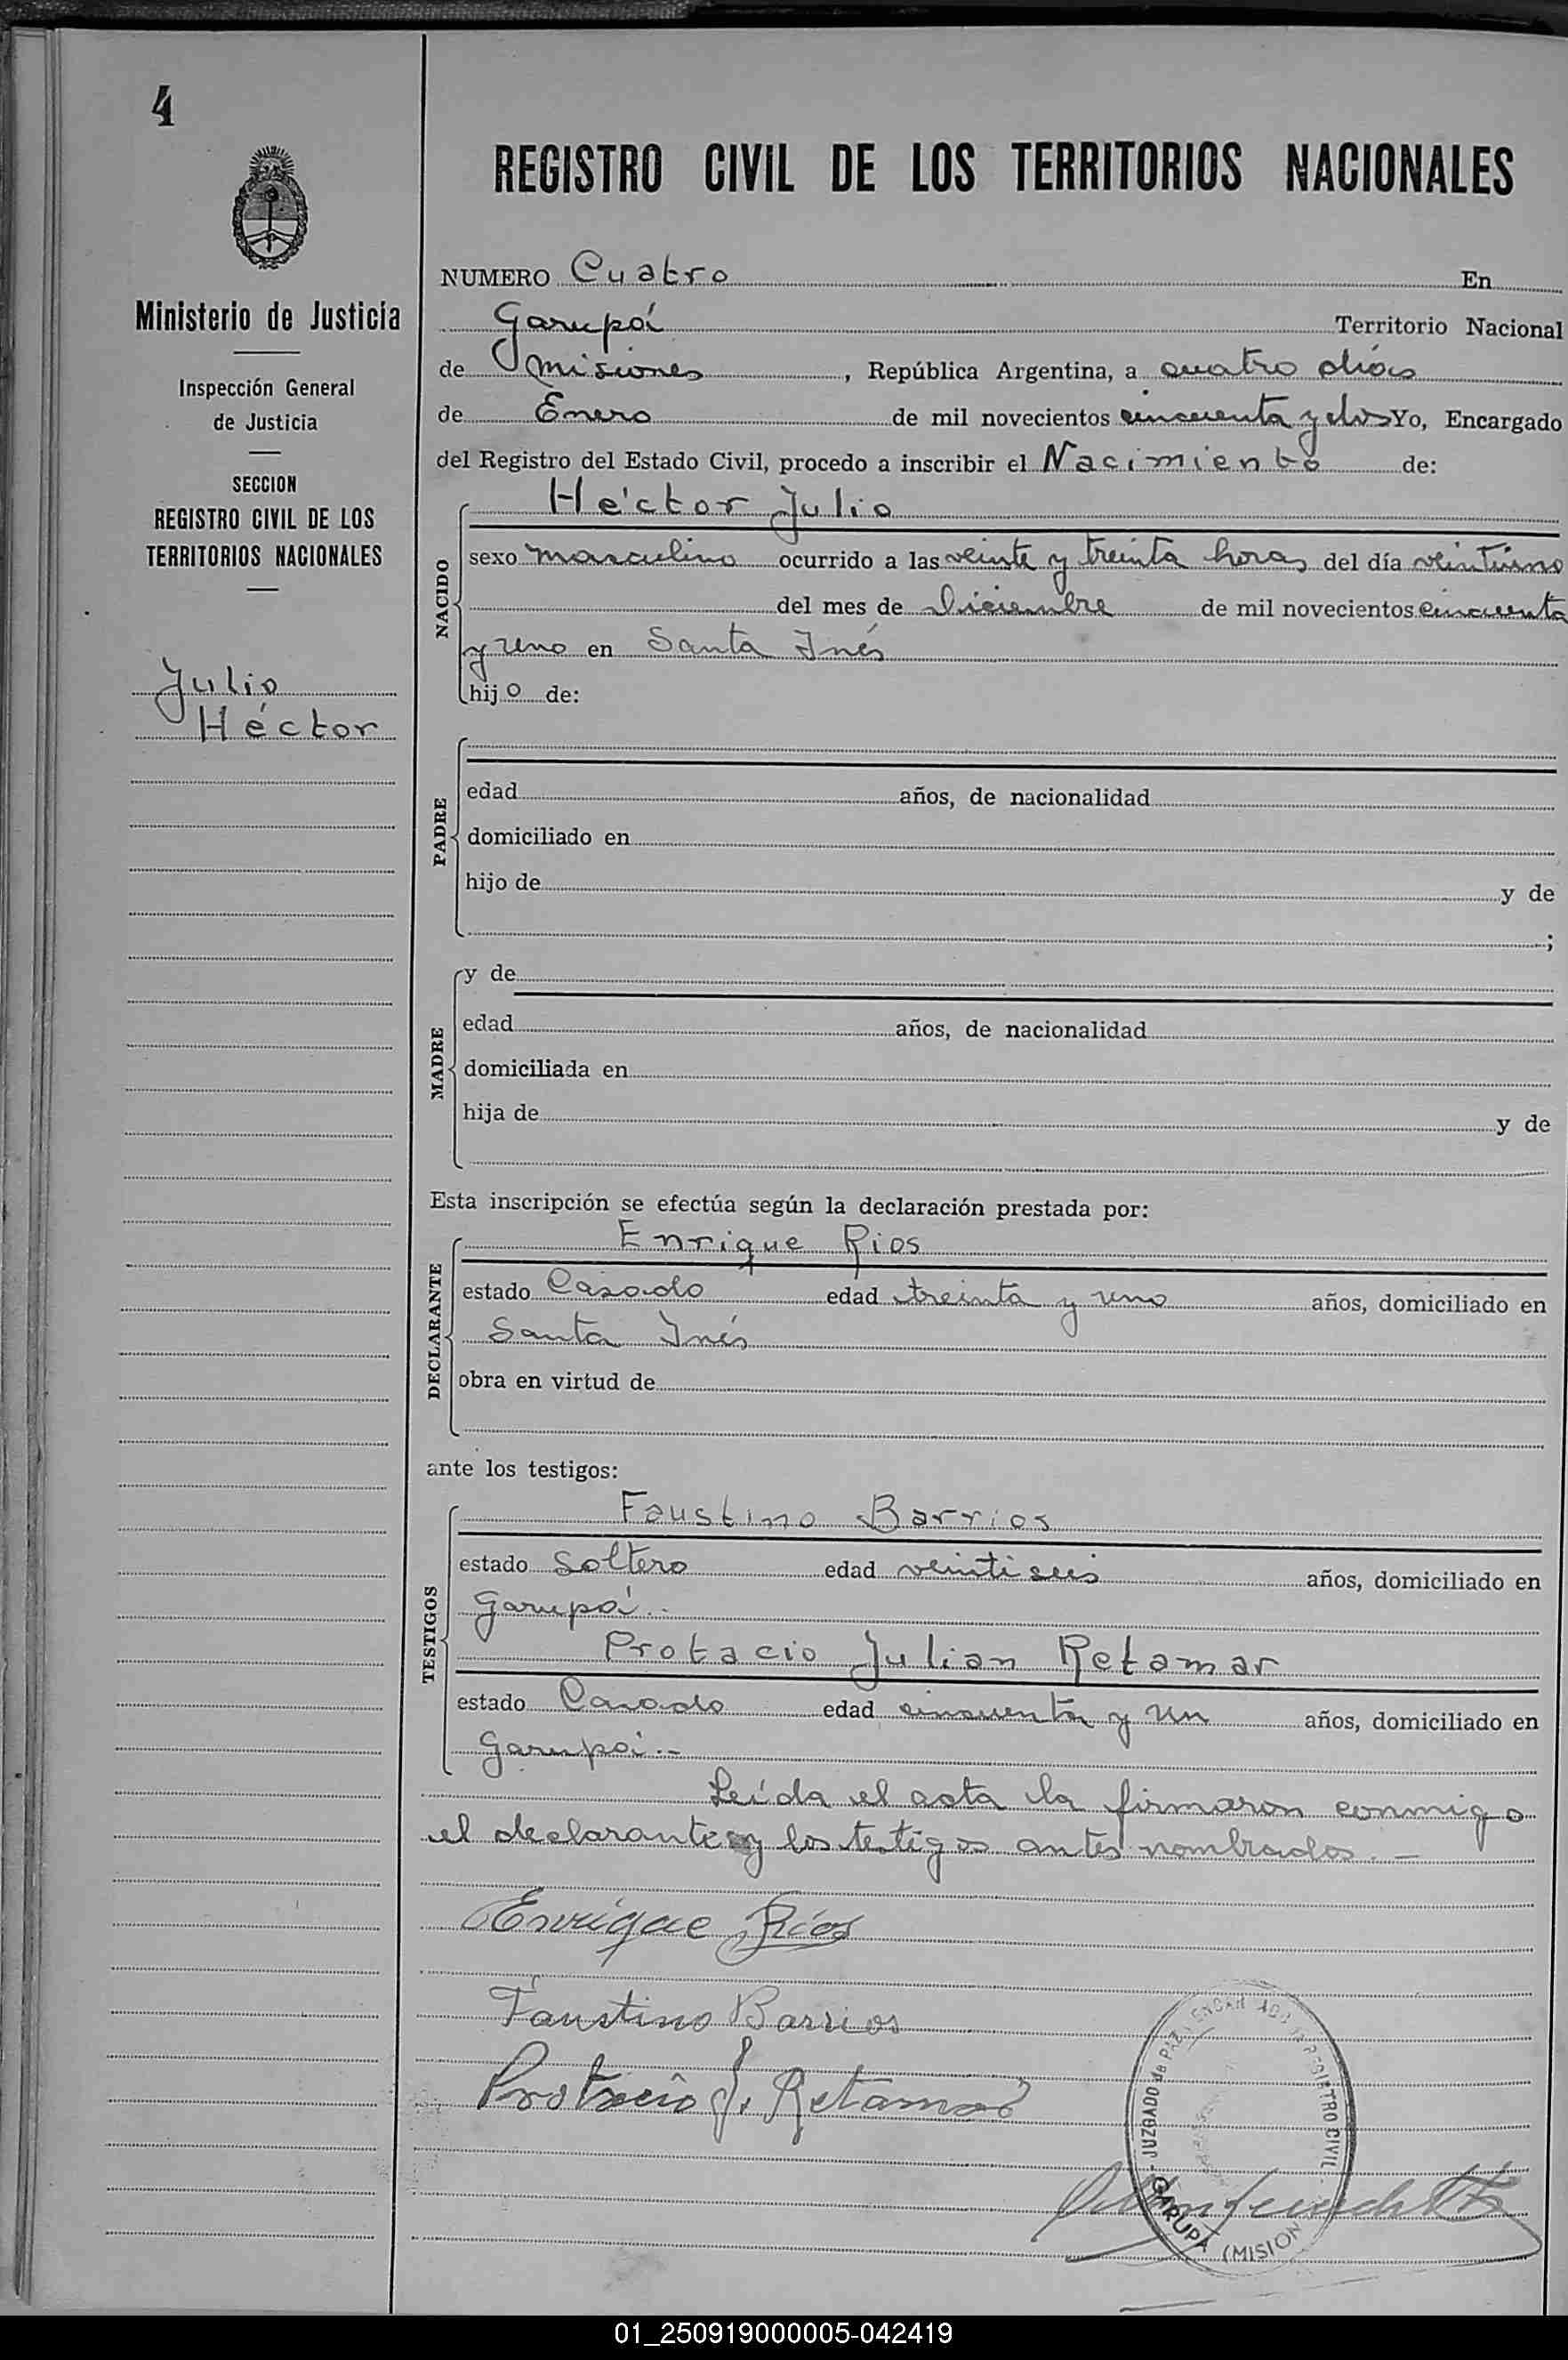 4
REGISTRO CIVIL DE LOS TERRITORIOS NACIONALES
Ministerio de Justicia
Inspección General
de Justicia
SECCION
REGISTRO CIVIL DE LOS
TERRITORIOS NACIONALES
Julio
Héctor
NUMERO Cuatro En
Garupá Territorio Nacional
de Misiones, República Argentina, a cuatro días
de Enero de mil novecientos cincuenta y dos Yo, Encargado
del Registro del Estado Civil, procedo a inscribir el Nacimiento de:
NACIDO
Héctor Julio
sexo masculino ocurrido a las veinte y treinta horas del día veintiuno
del mes de Diciembre de mil novecientos cincuenta
y uno en Santa Inés
hijo de:
PADRE
edad años, de nacionalidad
domiciliado en
hijo de y de
;
MADRE
y de
edad años, de nacionalidad
domiciliada en
hija de y de
Esta inscripción se efectúa según la declaración prestada por:
DECLARANTE
Enrique Rios
estado Casado edad treinta y uno años, domiciliado en
Santa Inés
obra en virtud de
ante los testigos:
TESTIGOS
Faustino Barrios
estado Soltero edad veintiseis años, domiciliado en
Garupá.-
Protacio Julian Retamar
estado Casado edad cincuenta y un años, domiciliado en
Garupá.-
Leída el acta la firmaron conmigo
el declarante y los testigos antes nombrados.-
Enrique Ríos
Faustino Barrios
Protacio J. Retamar
JUZGADO de PAZ
REGISTRO CIVIL
GARUPA (MISION
01_250919000005-042419